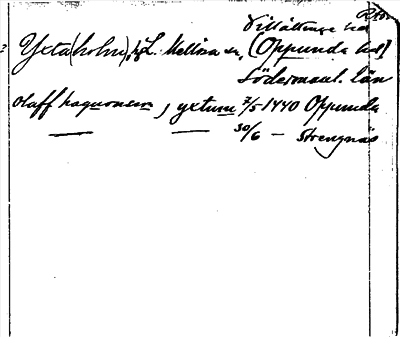 Villåttinge hd
Yxta(holm), hg L. Mellösa sn, (Oppunda hd)
Södermanl. län
olaff haquonson, yxtum 7/5 1440 Oppunda
30/6 — Strengnäs